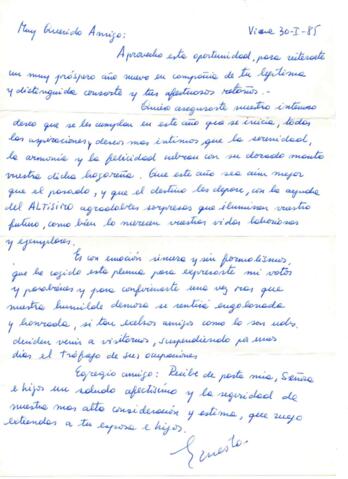 Muy Querido Amigo: Viana 30-I-85
Aprovecho esta oportunidad, para reiterarte
un muy próspero año nuevo en compañía de tu legítima
y distinguida consorte y tus afectuosos retoños.-
Quiero asegurarte nuestro intenso
deseo que se les cumplan en este año que se inicia, todas
las aspiraciones y deseos mas intimos que la serenidad,
la armonía y la felicidad cubran con su dorado manto
vuestra dicha hogareña. Que este año sea aún mejor
que el pasado, y que el destino les depare, con la ayuda
del ALTISIMO agradables sorpresas que iluminen vuestro
futuro, como bien lo merecen vuestras vidas laboriosas
y ejemplares.
Es con emoción sincera y sin formalismos,
que he cogido esta pluma para expresarte mi votos
y parabienes y para confirmarte una vez mas que
nuestra humilde demora se sentirá engalanada
y honrada, si tan excelsos amigos como lo son uds.
deciden venir a visitarnos, suspendiendo por unos
días el tráfago de sus ocupaciones
Egregio amigo: Recibe de parte mia, Señora
e hijos un saludo afectísimo y la seguridad de
nuestra mas alta consideración y estima, que ruego
extiendas a tu esposa e hijos.
Ernesto.